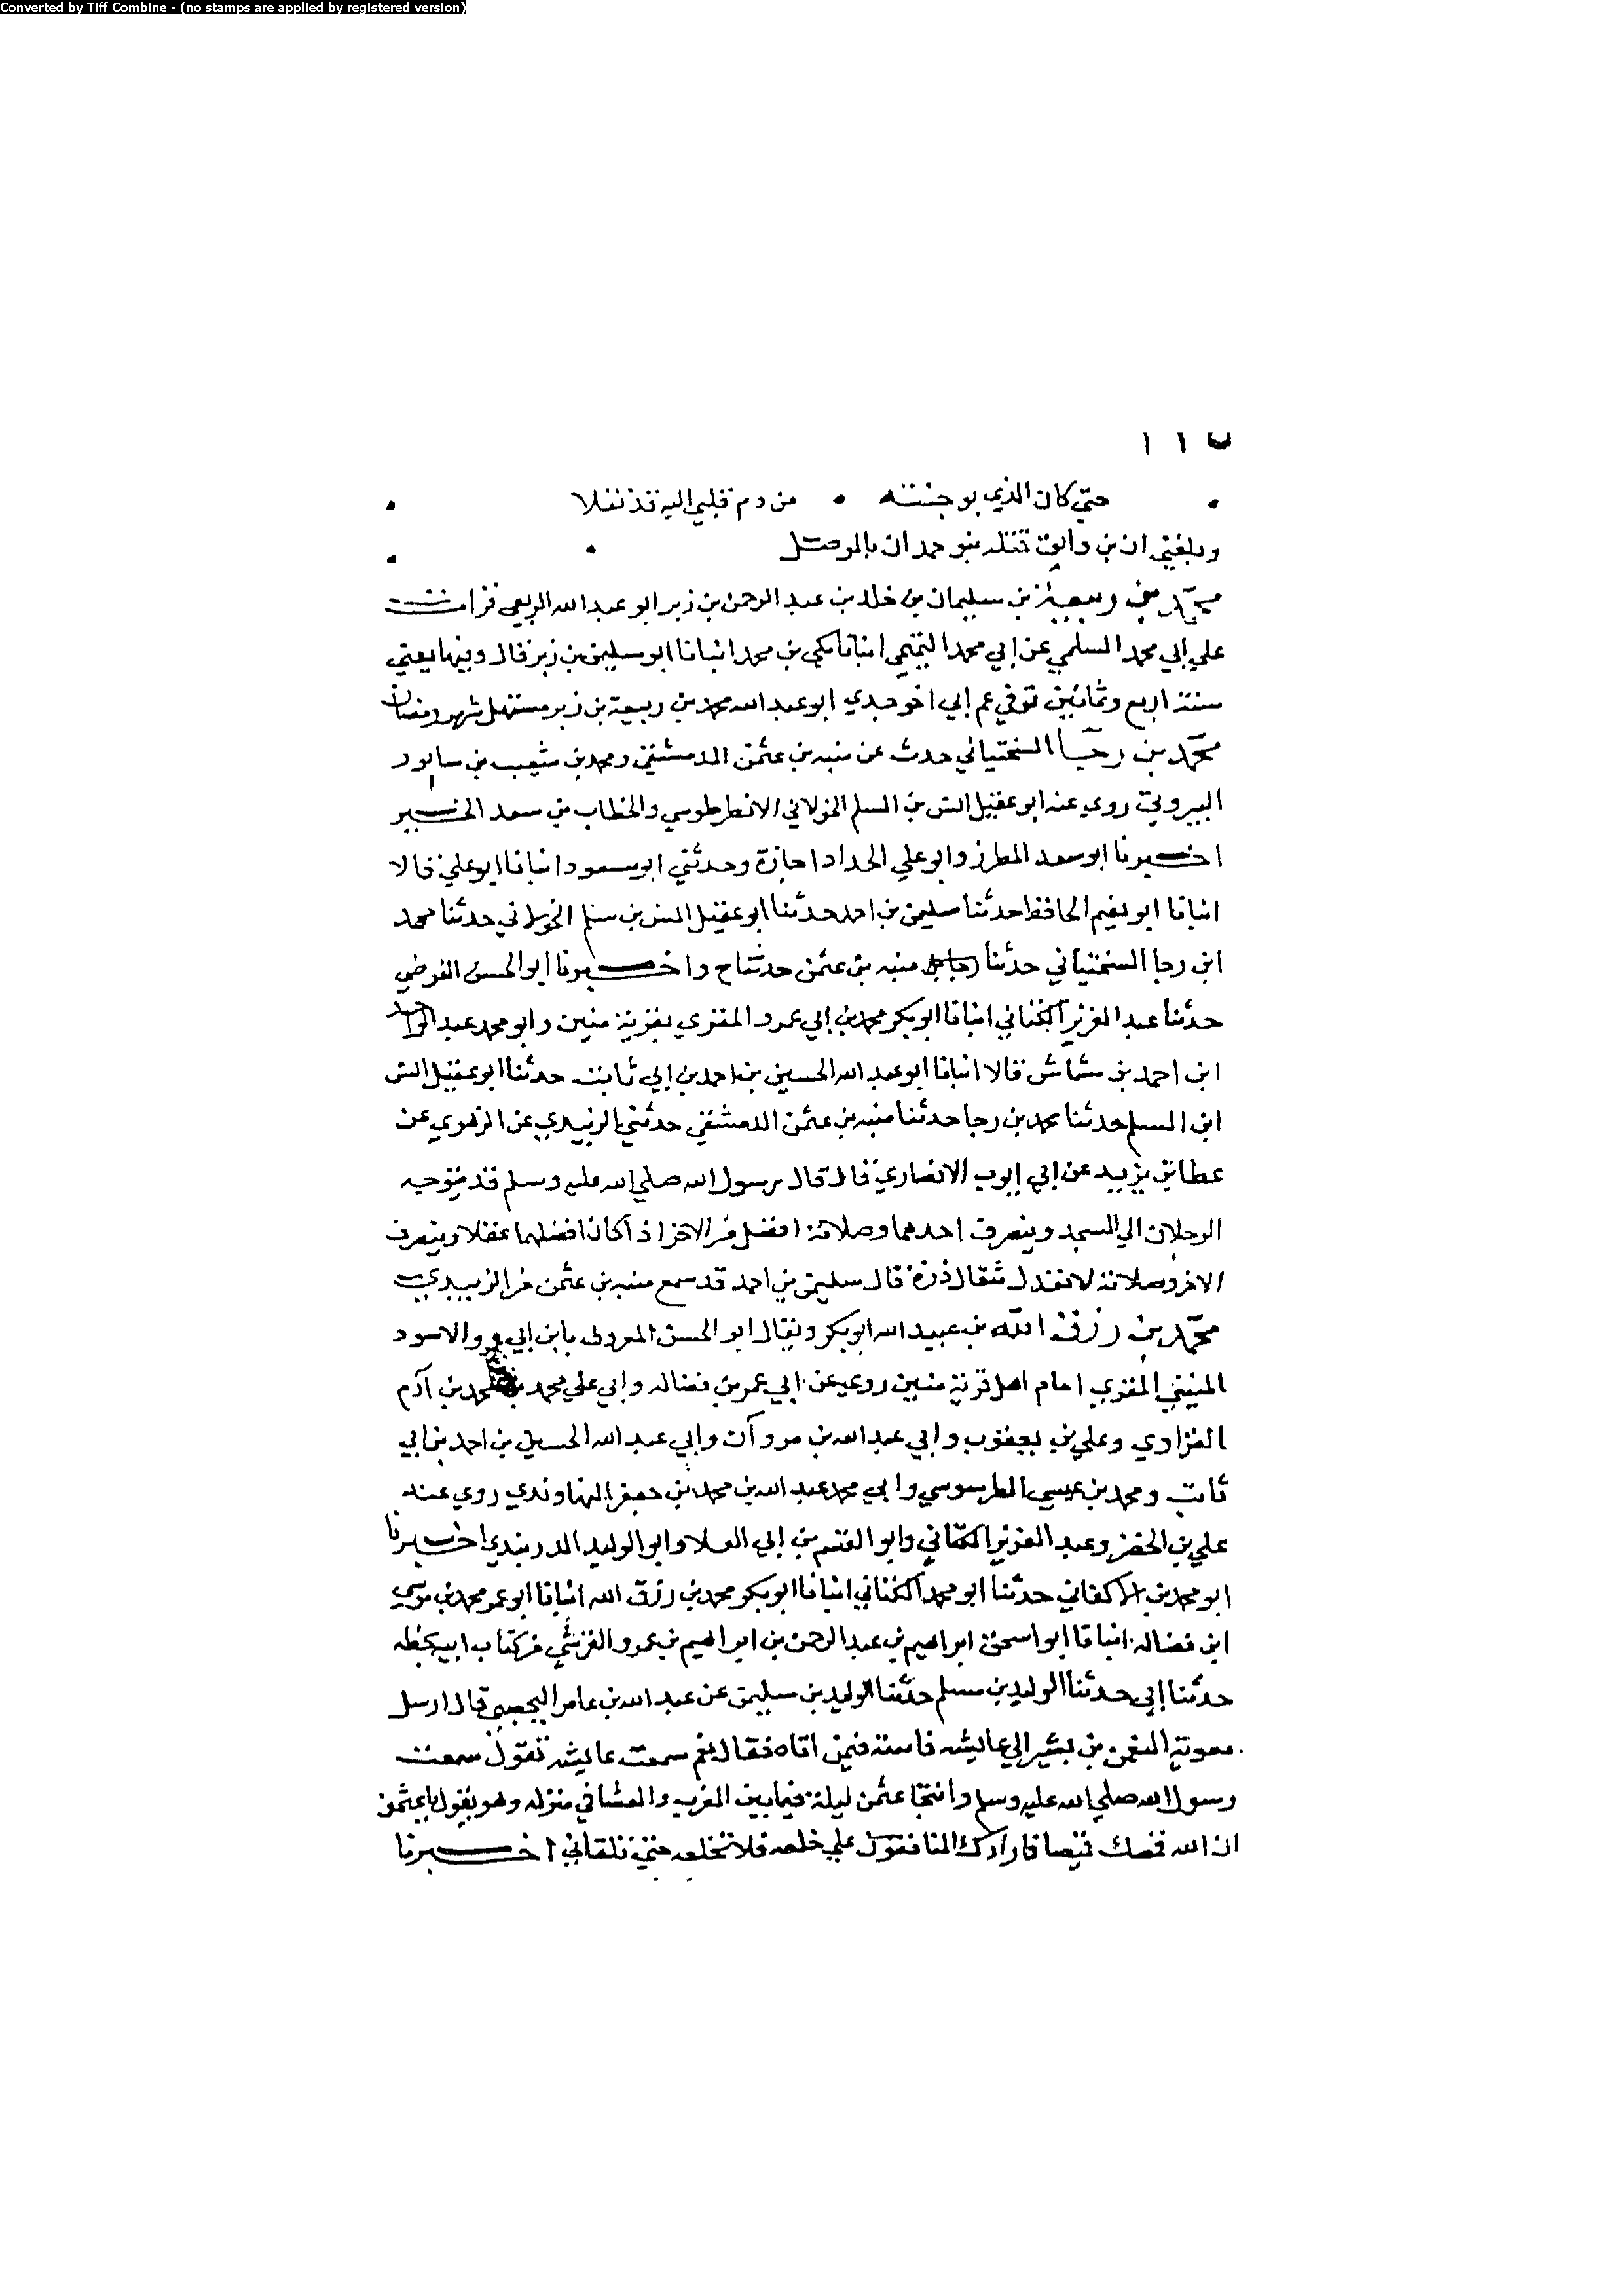 Converted by Tiff Combine - (no stamps are applied by registered version)
١١٥
حتي كان الذي بوجنته • من دم قلبي اليه قد نقلا
وبلغني ان بن رايق قتله بنو حمدان بالموصل
محمد بن ربيعة بن سليمان بن خلد بن عبد الرحمن بن زبر ابو عبد الله الربعي قرات
علي ابي محمد السلمي عن ابي محمد التميمي انبانا مكي بن محمد انبانا ابو سليمن بن زبر قال وفيها يعني
سنة اربع وثمانين توفي عم ابي اخو جدي ابو عبد الله محمد بن ربيعة بن زبر مستهل شهر رمضان
محمد بن رجا السختياني حدث عن منبه بن عثمن الدمشقي ومحمد بن شعيب بن سابور
البيروتي روي عنه ابو عقيل انس بن السلم الخولاني الانطرطوسي والخطاب بن سعد الخير
اخبرنا ابو سعد المطرز وابو علي الحداد اجازة وحدثني ابو مسعود انبانا ابو علي قالا
انبانا ابو نعيم الحافظ حدثنا سليمن بن احمد حدثنا ابو عقيل انس بن سلم الخولاني حدثنا محمد
ابن رجا السختياني حدثنا منبه بن عثمن حدثنا ح واخبرنا ابو الحسن الفرضي
حدثنا عبد العزيز الكتاني انبانا ابو بكر محمد بن ابي عمرو المقري بقرية منين وابو محمد عبد الواحد
ابن احمد بن مشماش قالا انبانا ابو عبد الله الحسين بن احمد بن ابي ثابت حدثنا ابو عقيل انس
ابن السلم حدثنا محمد بن رجا حدثنا منبه بن عثمن الدمشقي حدثني الزبيدي عن الزهري عن
عطا بن يزيد عن ابي ايوب الانصاري قال قال رسول الله صلي الله عليه وسلم قد يتوجه
الرجلان الي المسجد وينصرف احدهما وصلاته افضل من الاخر اذا كان افضلهما عقلا وينصرف
الاخر وصلاته لا تعدل مثقال ذرة قال سليمن بن احمد قد سمع منبه بن عثمن من الزبيدي
محمد بن رزق الله بن عبيد الله ابو بكر ويقال ابو الحسن المعروف بابن ابي عمرو الاسود
المنيني المقري امام اهل قرية منين روي عن ابي عمر بن فضاله وابي علي محمد بن محمد بن آدم
الفزاري وعلي بن يعقوب وابي عبد الله بن مروان وابي عبد الله الحسين بن احمد بن ابي
ثابت ومحمد بن عيسي الطرسوسي وابي محمد عبد الله بن محمد بن جعفر النهاوندي روي عنه
علي بن الخضر وعبد العزيز الكتاني وابو القسم بن ابي العلا وابو الوليد الدربندي اخبرنا
ابو محمد بن الاكفاني حدثنا ابو محمد الكتاني انبانا ابو بكر محمد بن رزق الله انبانا ابو عمر محمد بن موسي
ابن فضاله انبانا ابو اسحق ابراهيم بن عبد الرحمن بن ابراهيم بن عمرو القرشي من كتاب ابيه بخطه
حدثنا ابي حدثنا الوليد بن مسلم حدثنا الوليد بن سليمن عن عبد الله بن عامر اليحصبي قال ارسل
معوية النعمن بن بشير الي عايشه فاتاه فقال نعم سمعت عايشه تقول سمعت
رسول الله صلي الله عليه وسلم وانتجا عثمن ليلة فيما بين المغرب والعشا في منزله وهو يقول يا عثمن
ان الله قمصك قميصا فان ارادك المنافقون علي خلعه فلا تخلعه حتي تلقاني اخبرنا